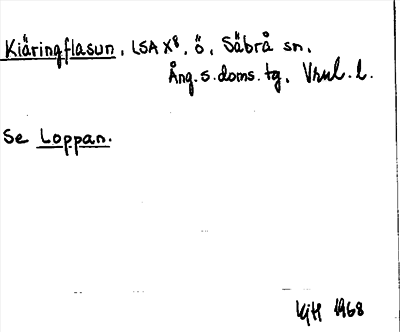 Kiäringflasun, LSA X8, ö, Säbrå sn,
Ång. s. doms. tg, Vnl. l.
Se Loppan.
1968